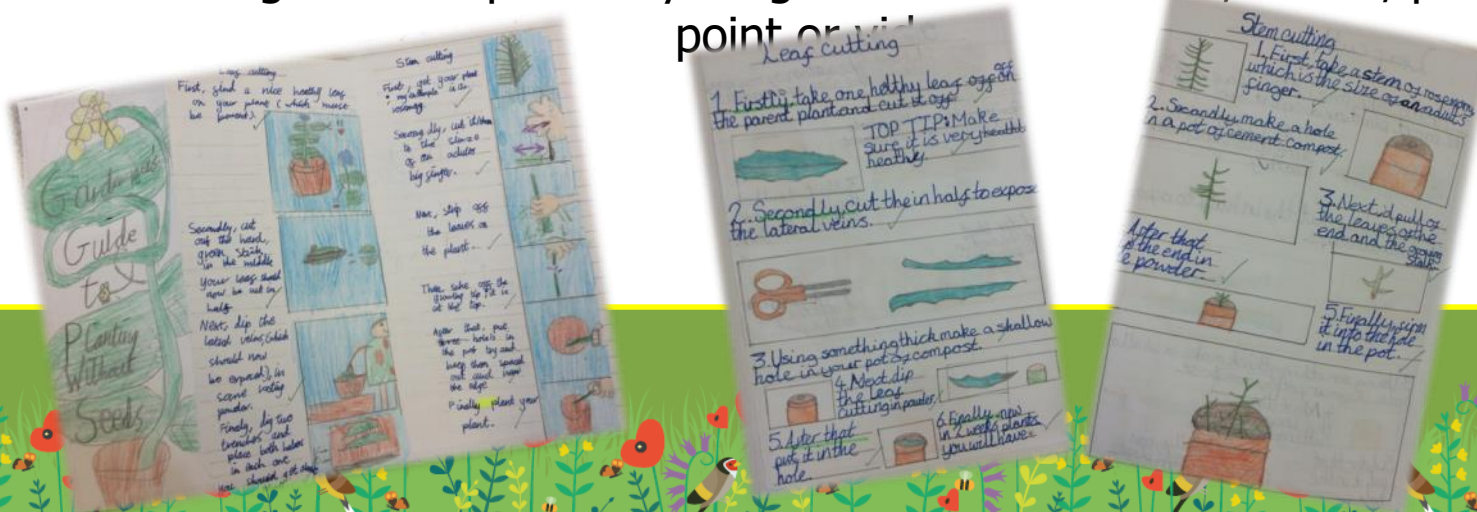 point or
Gardener's
Guide
to
Planting
Without
Seeds
Leaf cutting
First, find a nice healthy leaf
on your plant (which must
be parent).
Secondly, cut
out the hard,
green stick
in the middle
your leaf should
now be cut in
half.
Next, dip the
lateral veins (which
should now
be exposed), in
some rooting
powder.
Finally, dig two
trenches and
place both halves
in each one.
you should get
Stem cutting
First, get your plant
my example is
rosemary
to the size
of an adults
big finger.
Next, strip off
the leaves on
the plant.
Then take off the
growing tip it is
at the top.
After that, put
holes in
the pot try and
keep them spread
out and near
the edge
Finally plant your
plant.
Leaf cutting
off
1. Firstly, take one helthy leaf off on
the parent plant and cut it off.
TOP TIP: Make
sure it is very
heathy.
2. Secondly, cut the in half to expose
the lateral veins.
3. Using something thick make a shallow
hole in your pot of compost.
4. Next dip
the leaf
cutting in powder.
5. After that
put it in the
hole.
6. Finally, now
in 2 weeks plants
you will have.
Stem cutting
1. First, take a stem of rosemary
which is the size of an adults
finger.
2. Secondly, make a hole
in a pot of cement compost.
3. Next, pull of
the leaves of the
end and the
After that
the end in
powder
5. Finally,
it into the hole
in the pot.